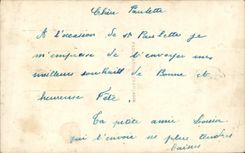 Chère Paulette
A l'occasion de Ste Paulette je
m'empresse de t'envoyer mes
meilleurs souhaits de Bonne et
heureuse Fête
Ta petite amie
qui t'envoie ses plus tendres
baisers